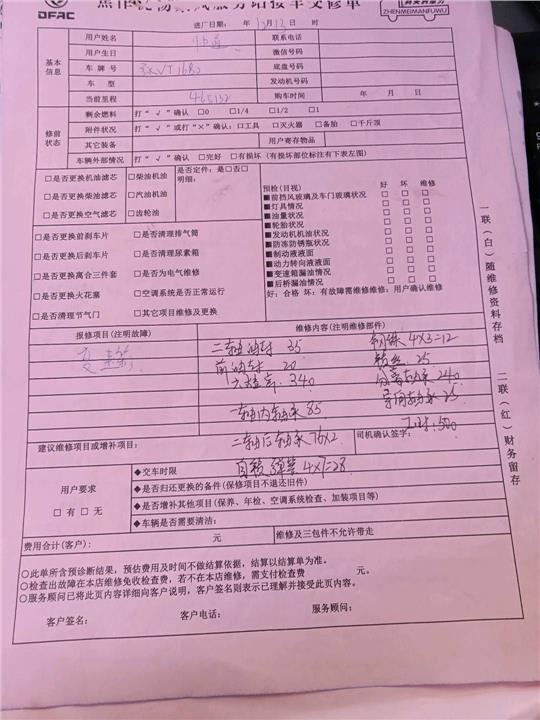 服务站接车交修单
DFAC
ZHENMEIMANFUWU
进厂日期: 年 12月13日 时
用户姓名 联系电话
用户生日 微信号码
基本信息
车牌号 底盘号码
车型 发动机号码
当前里程 465132 购车时间 年 月 日
修前状态
剩余燃料 打“√”确认 □0 □1/4 □1/2 □1
附件状况 打“√”或打“×”确认:□工具 □灭火器 □备胎 □千斤顶
其它装备 用户寄存物品
车辆外部情况 打“√”确认 □完好 □有损坏(有损坏部位标注有下表左图)
□是否更换机油滤芯 □柴油机油 是否定件:是□否□
明细:
□是否更换柴油滤芯 □汽油机油
□是否更换空气滤芯 □齿轮油
□是否更换前刹车片 □是否清理排气筒
□是否更换后刹车片 □是否清理尿素箱
□是否更换离合三件套 □是否为电气维修
□是否更换火花塞 □空调系统是否正常运行
□是否清理节气门 □其它项目维修及更换
预检(目视) 好 坏 维修
■前挡风玻璃及车门玻璃状况 □ □ □
■灯具情况 □ □ □
■油量状况 □ □ □
■轮胎状况 □ □ □
■发动机机油状况 □ □ □
■防冻防锈瓶状况 □ □ □
■制动液液面 □ □ □
■动力转向液液面 □ □ □
■变速箱漏油情况 □ □ □
■后桥漏油情况 □ □ □
好:合格 坏:有故障需维修维修:用户确认维修
报修项目(注明故障) 维修内容(注明维修部件)
变速箱
二轴油封 35 钢珠 4×3=12
前油封 20 锁丝 25
六档齿 340 分离轴承 240
一轴内轴承 85 导向轴承 25
工时:500
建议维修项目或增补项目: 二轴后轴承 76×2 司机确认签字:
自锁弹簧 4×7=28
用户要求
□有 □无
◆交车时限
◆是否归还更换的备件(保修项目不退还旧件)
◆是否增补其他项目(保养、年检、空调系统检查、加装项目等)
◆车辆是否需要清洁:
费用合计(客户): 元 维修及三包件不允许带走
○此单所含预诊断结果,预估费用及时间不做结算依据,结算以结算单为准。
○检查出故障在本店维修免收检查费,若不在本店维修,需支付检查费 元。
○服务顾问已将此页内容详细向客户说明,客户签名则表示已理解并接受此页内容。
客户签名: 客户电话: 服务顾问:
一联(白)随维修资料存档
二联(红)财务留存